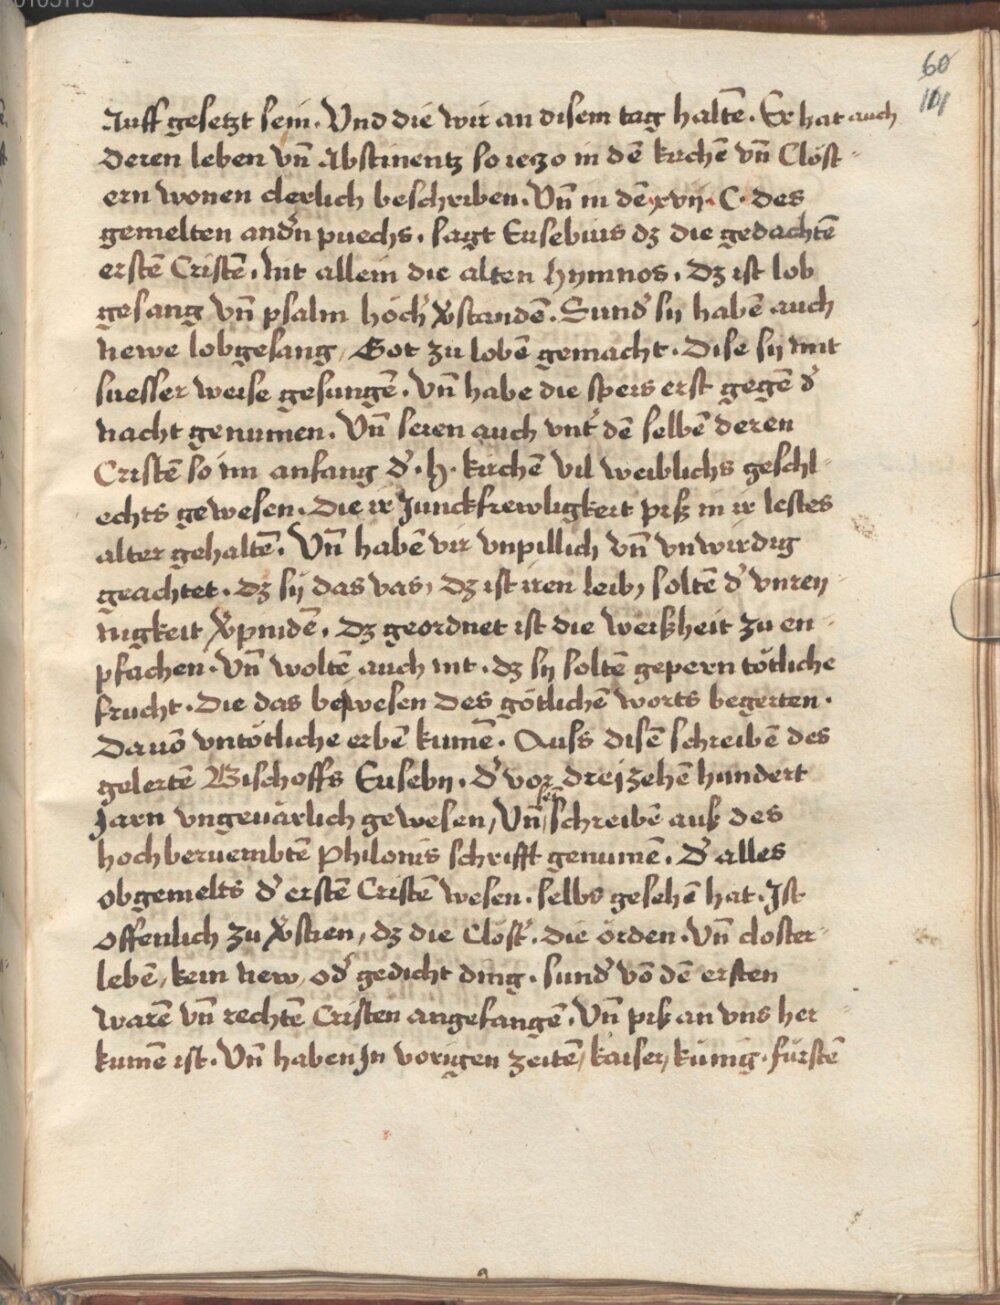 60
101
Auff gesetzt sein. Vnd die wir an disem tag haltē. Er hat auch
deren leben vn̄ Abstinentz so iezo in dē kirchē vn̄ Clöst-
ern wonen clerlich beschriben. Vn̄ in dē xvij. C. des
gemelten and'n puechs. sagt Eusebius dz die gedachtē
erstē Cristē. Nit allein die alten hymnos. Dz ist lob
gesang vn̄ psalm hoch v'standē. Sund' sij habē auch
newe lobgesang, Got zu lobē gemacht. Dise sij mit
suesser weise gesungē. Vn̄ habe die speis erst gegē d'
nacht genumen. Vn̄ seien auch vnt' dē selbē deren
Cristē so im anfang d'. h. kirchē vil weiblichs geschl-
echts gewesen. Die ir Junckfrewligkeit piß in ir lestes
alter gehaltē. Vn̄ habē vir vnpillich vn̄ vnwirdig
geachtet. dz sij das vas, dz ist iren leib, soltē d' vnrey-
nigkeit v'pindē. Dz geordnet ist die weißheit zu en-
pfachen. Vn̄ woltē auch nit. dz sij soltē gepern tötliche
frucht. Die das bewesen des götlichē worts begerten.
Dauō vntötliche erbē kumē. Auss disē schreibē des
gelertē Bischoffs Eusebij. d' vor dreizehē hundert
Jarn vngeuärlich gewesen, Vn̄ sei schreibē auß des
hochberuembtē Philonis schrifft genumē. D' alles
obgemelts d' erstē Cristē wesen. selbs gesehē hat. Ist
offenlich zu v'stien, dz die Clöst'. die örden. Vn̄ closter-
lebē, kein new, od' gedicht ding. sund' vō dē ersten
warē vn̄ rechtē Cristen angefangē. Vn̄ piß an vns her
kumē ist. Vn̄ haben In vorigen zeitē, kaiser, künig. fürstē